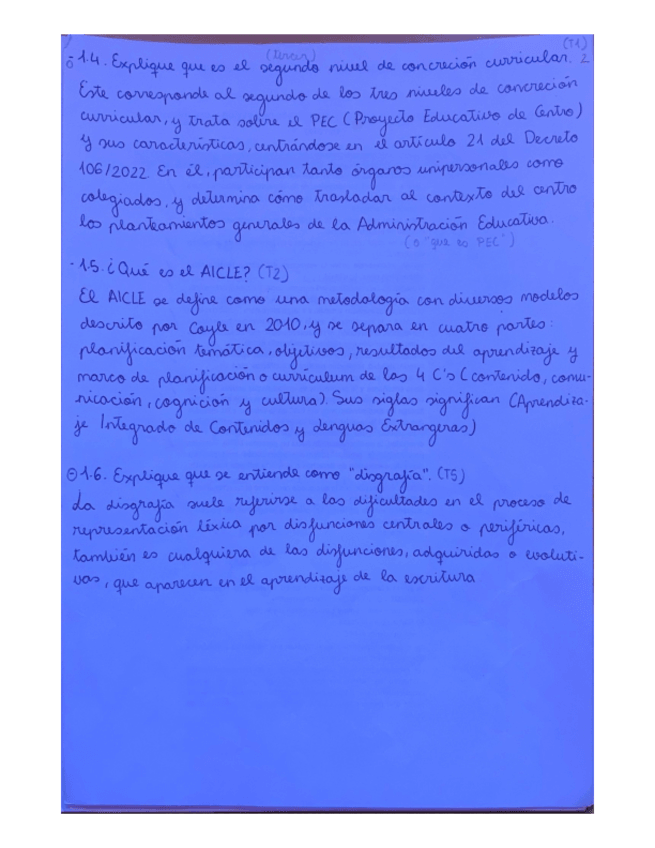 (T1)
(tercer)
- 1.4. Explique que es el segundo nivel de concreción curricular. 2
Este corresponde al segundo de los tres niveles de concreción
curricular, y trata sobre el PEC (Proyecto Educativo de Centro)
y sus características, centrándose en el artículo 21 del Decreto
106/2022. En él, participan tanto órganos unipersonales como
colegiados, y determina cómo trasladar al contexto del centro
los planteamientos generales de la Administración Educativa.
(o "que es PEC")
- 1.5. ¿Qué es el AICLE? (T2)
El AICLE se define como una metodología con diversos modelos
descrito por Coyle en 2010, y se separa en cuatro partes:
planificación temática, objetivos, resultados del aprendizaje y
marco de planificación o currículum de las 4 C's (contenido, comu-
nicación, cognición y cultura). Sus siglas significan (Aprendiza-
je Integrado de Contenidos y Lenguas Extrangeras)
1.6. Explique que se entiende como "disgrafía". (T5)
La disgrafía suele referirse a las dificultades en el proceso de
representación léxica por disfunciones centrales o periféricas,
también es cualquiera de las disfunciones, adquiridas o evoluti-
vas, que aparecen en el aprendizaje de la escritura